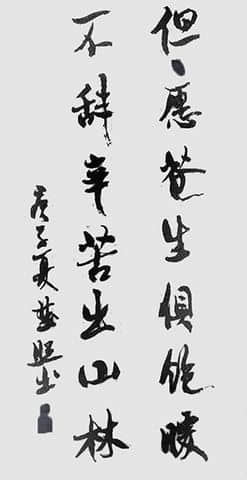 但愿苍生俱饱暖
不辞辛苦出山林
庚子夏